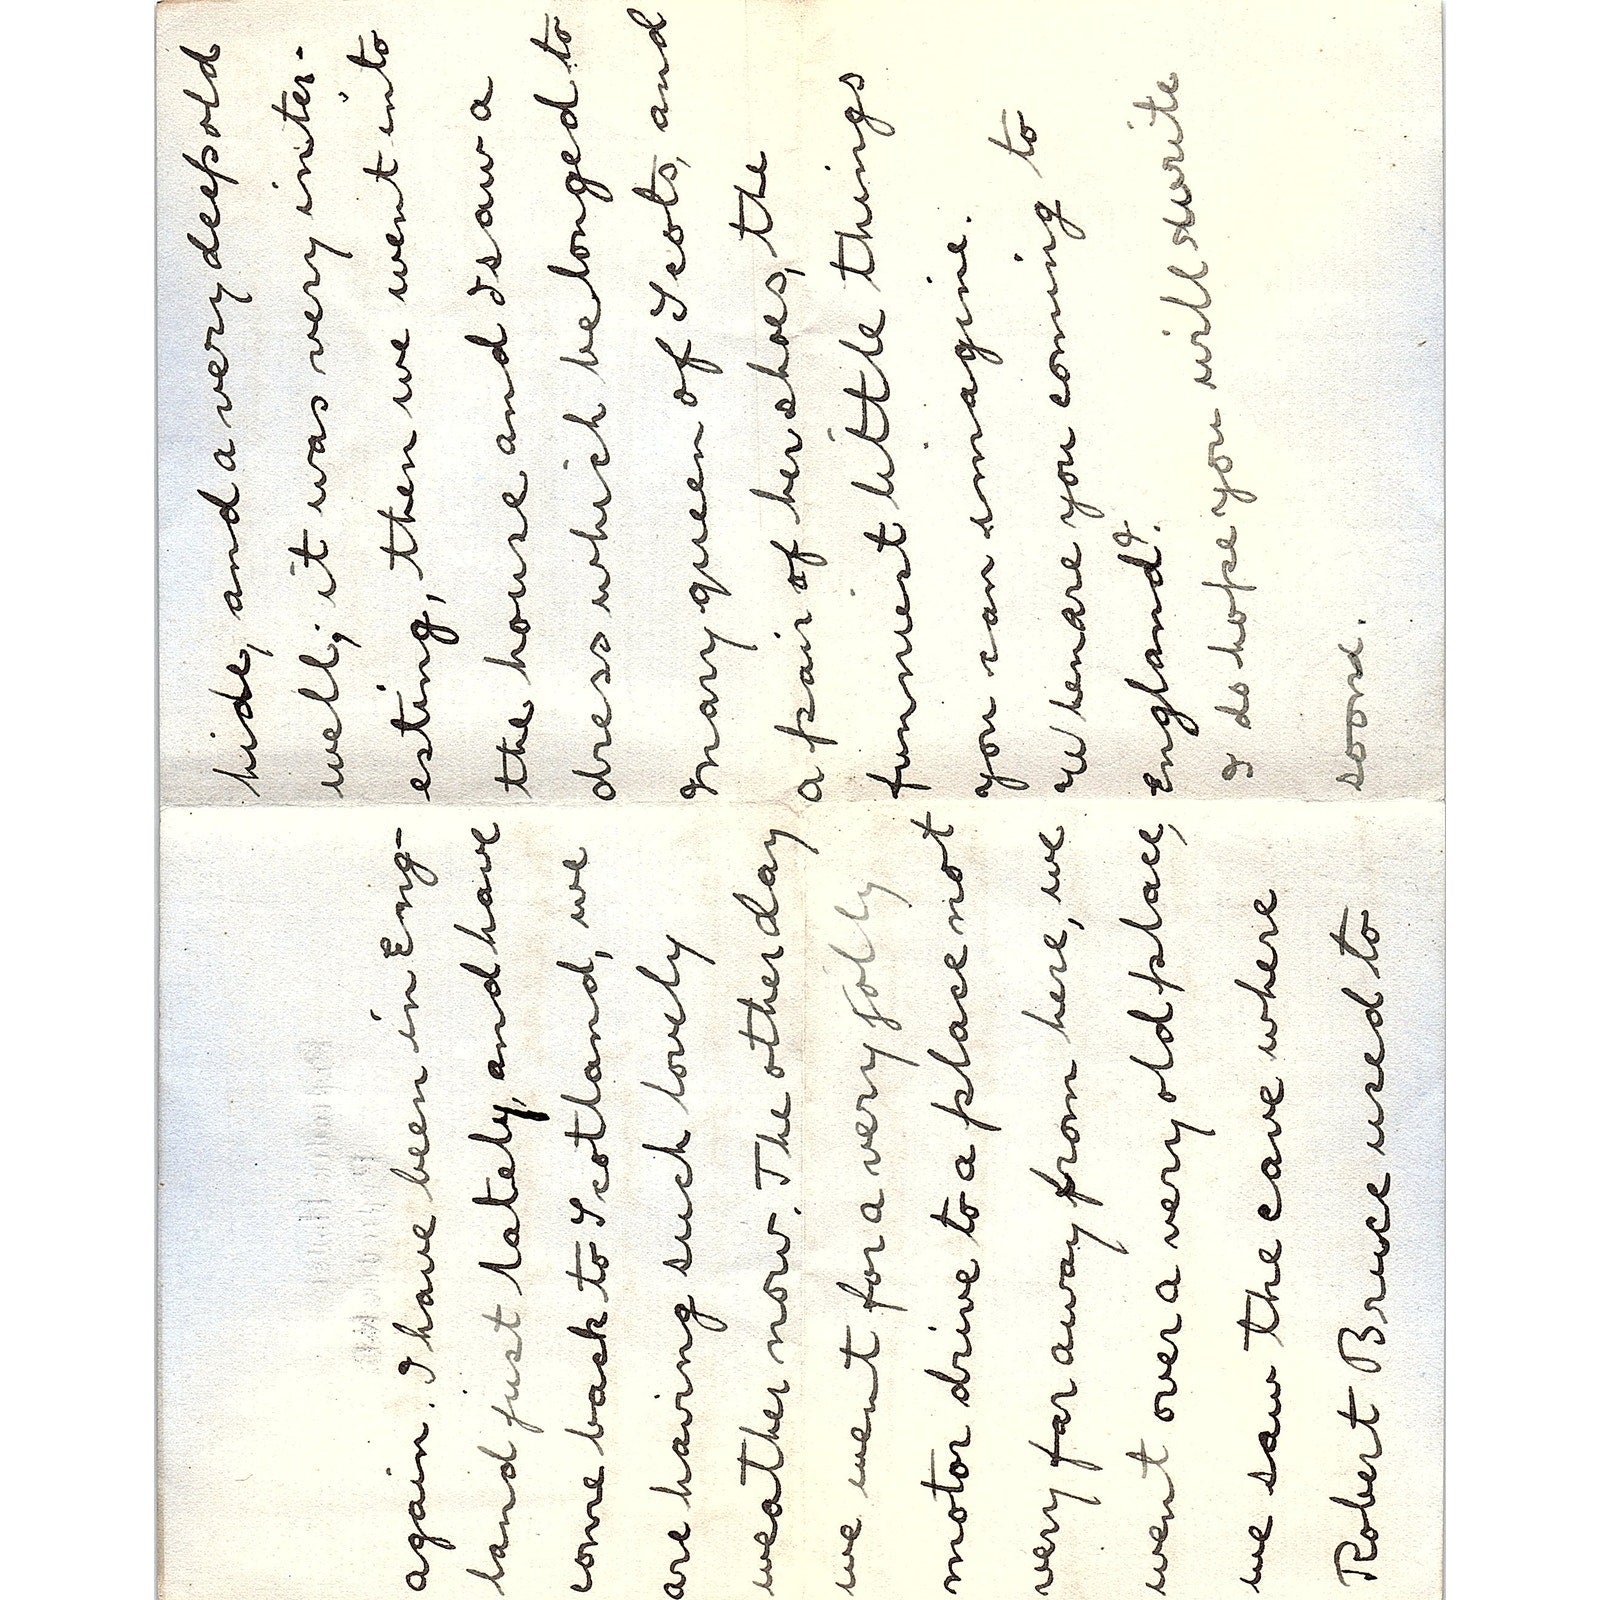 again. I have been in Eng-
land just lately, and have
come back to Scotland, we
are having such lovely
weather now. The other day
we went for a very jolly
motor drive to a place not
very far away from here, we
went over a very old place,
we saw the cave where
Robert Bruce used to
hide, and a very deep old
well; it was very inter-
esting, then we went into
the house and I saw a
dress which belonged to
Mary queen of Scots, and
a pair of her shoes, the
funniest little things
you can imagine.
When are you coming to
England?.
I do hope you will write
soon.